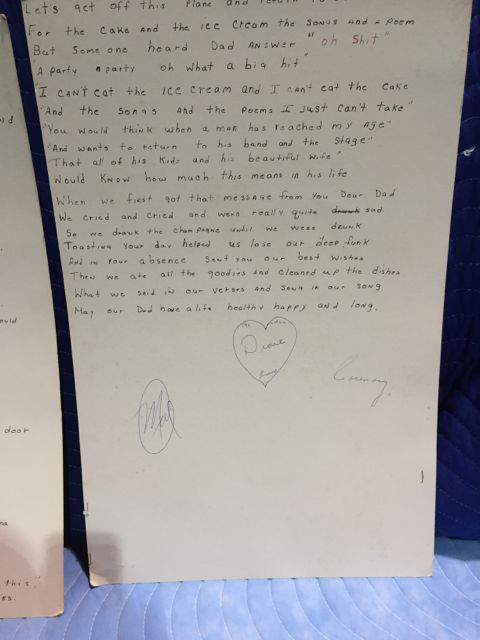 Let's get off this Plane and return to
For the Cake and the ice cream the songs and a Poem
But Some one heard Dad answer "oh shit"
"A party a party oh what a big hit"
"I can't eat the ice cream and I can't eat the cake
"And the songs and the poems I just can't take"
"You would think when a man has reached my age"
"And wants to return to his band and the stage"
"That all of his kids and his beautiful wife"
Would know how much this means in his life
When we first got that message from you Dear Dad
We cried and cried and were really quite drunk sad.
So we drank the champagne until we were drunk
Toasting your day helped us lose our deep funk
And in your absence sent you our best wishes
Then we ate all the goodies and cleaned up the dishes
What we said in our verses and sang in our song
May our Dad have a life healthy happy and long.
Diane
ould
door
this."